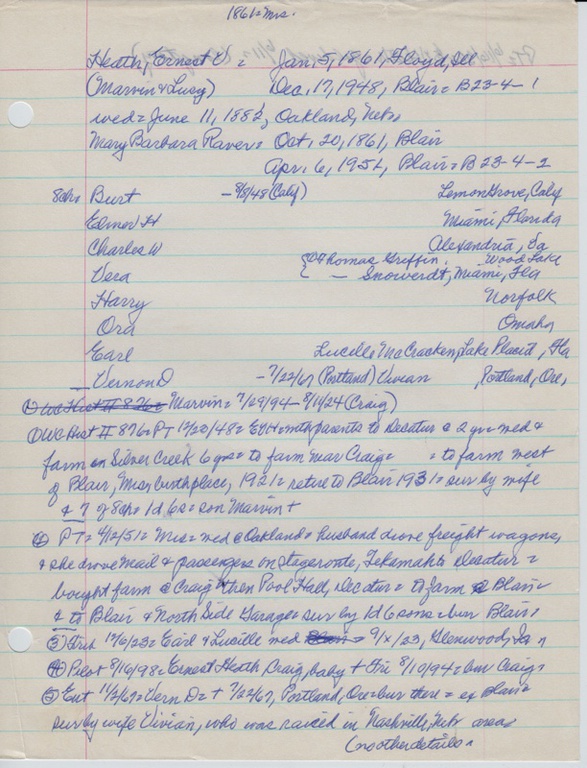 1861= Mrs.
Heath, Ernest V = Jan. 5, 1861, Floyd, Ill
(Marvin & Lucy) Dec. 17, 1948, Blair = B23-4-1
wed = June 11, 1882, Oakland, Nebr
Mary Barbara Raver = Oct. 20, 1861, Blair
Apr. 6, 1951, Blair = B23-4-2
8ch= Burt - 8/8/48 (Calif) Lemon Grove, Calif
Elmer H Miami, Florida
Charles W Alexandria, Va
Vera { Thomas Griffin, Wood Lake
{ — Snowerdt, Miami, Fla
Harry Norfolk
Ora Omaha
Earl Lucille McCracken, Lake Placid, Fla
Vernon D - 7/22/67 (Portland) Vivian Portland, Ore,
Marvin = 7/29/94 - 8/11/24 (Craig)
① WC Hist II 876 = PT 12/20/48 = EVH with parents to Decatur @ 2 yr = wed &
farm on Silver Creek 6 yrs = to farm near Craig = to farm west
of Blair, Mrs, birthplace, 1921 = retire to Blair 1931 = sur by wife
& 7 of 8 ch = 1d 6s = son Marvin +
② PT = 4/12/51 = Mrs = wed @ Oakland = husband drove freight wagons,
& she drove mail & passengers on stage route, Tekamah to Decatur =
bought farm @ Craig then Pool Hall, Decatur = to farm Blair =
& to Blair & North Side Garage = sur by 1d 6 sons = bur Blair =
③ Trib 12/6/23 = Earl & Lucille wed 9/x/23, Glenwood, Ia
④ Pilot 8/16/98 = Ernest Heath, Craig, baby + Fri 8/10/94 = bur Craig =
⑤ Ent 11/2/67 = Vern D = + 7/22/67, Portland, Or = bur there = ex Blair =
sur by wife Vivian, who was raised in Nashville, Nebr area
(no other details =